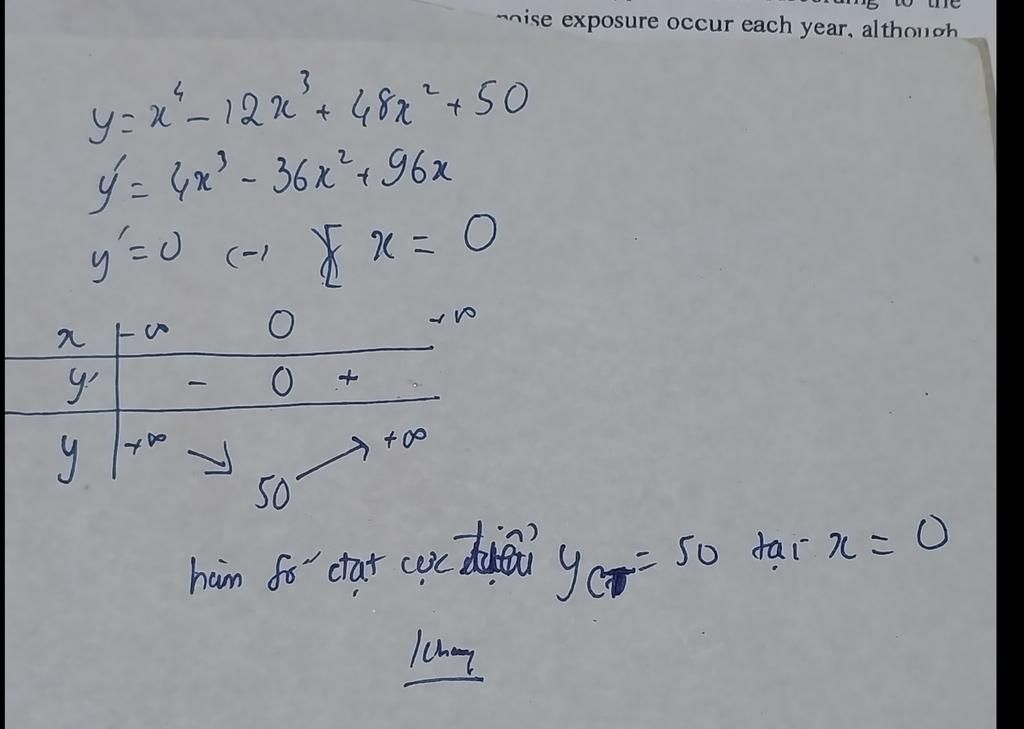 noise exposure occur each year, although
y = x⁴ - 12x³ + 48x² + 50
y' = 4x³ - 36x² + 96x
y' = 0 (-) x = 0
x -∞ 0 +∞
y' - 0 +
y +∞ ↘ 50 ↗ +∞
hàm số đạt cực tiểu y_CT = 50 tại x = 0